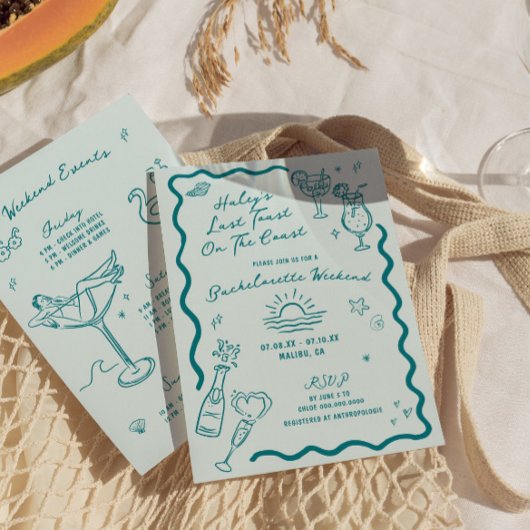 Weekend Events
Friday
4 PM - CHECK INTO HOTEL
5 PM - WELCOME DRINKS
6 PM - DINNER & GAMES
Haley's
Last Toast
On The Coast
PLEASE JOIN US FOR A
Bachelorette Weekend
07.08.XX - 07.10.XX
MALIBU, CA
RSVP
BY JUNE 5 TO
CHLOE 000.000.0000
REGISTERED AT ANTHROPOLOGIE